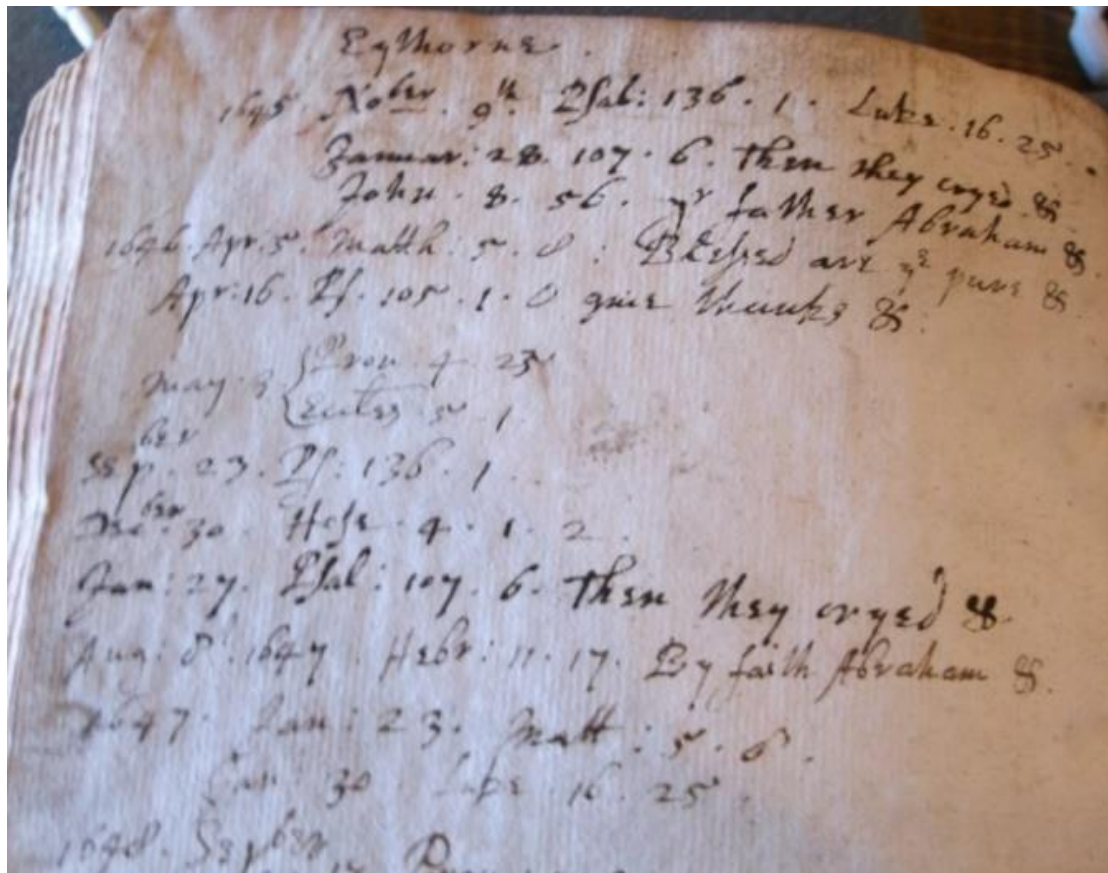 Eythorne.
1645. No^ber. 9th. Psal: 136. 1. Luke. 16. 25.
Januar: 28. 107. 6. Then they cryed &.
John. 8. 56. yr father Abraham &.
1646. Apr. 5. Matth: 5. 8: Blessed are ye pure &
Apr. 16. Ps. 105. 1. O giue thanks &.
May. 3 { Prou 4 23
{ Eccles 5 1
Sep^ber. 23. Ps: 136. 1.
Dec^ber. 30. Hose. 4. 1. 2.
Jan: 27. Psal: 107. 6. Then they cryed &.
Aug: 8. 1647. Hebr: 11. 17. By faith Abraham &.
1647. Jan: 23. Matt: 5. 6.
Jan 30 Luke. 16. 25.
1648. Sep^ber